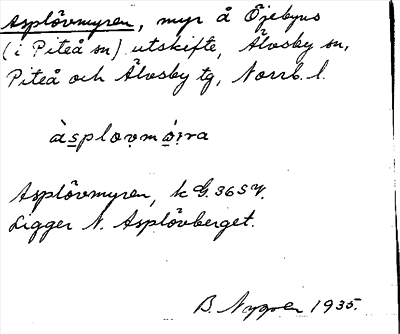 Asplövmyren, myr å Öjebyns
(i Piteå sn) utskifte, Älvsby sn,
Piteå och Älvsby tg, Norrb. l.
àsplovmóira
Asplövmyren, k G. 36 S Y.
Ligger N. Asplövberget.
B. Nygren 1935.